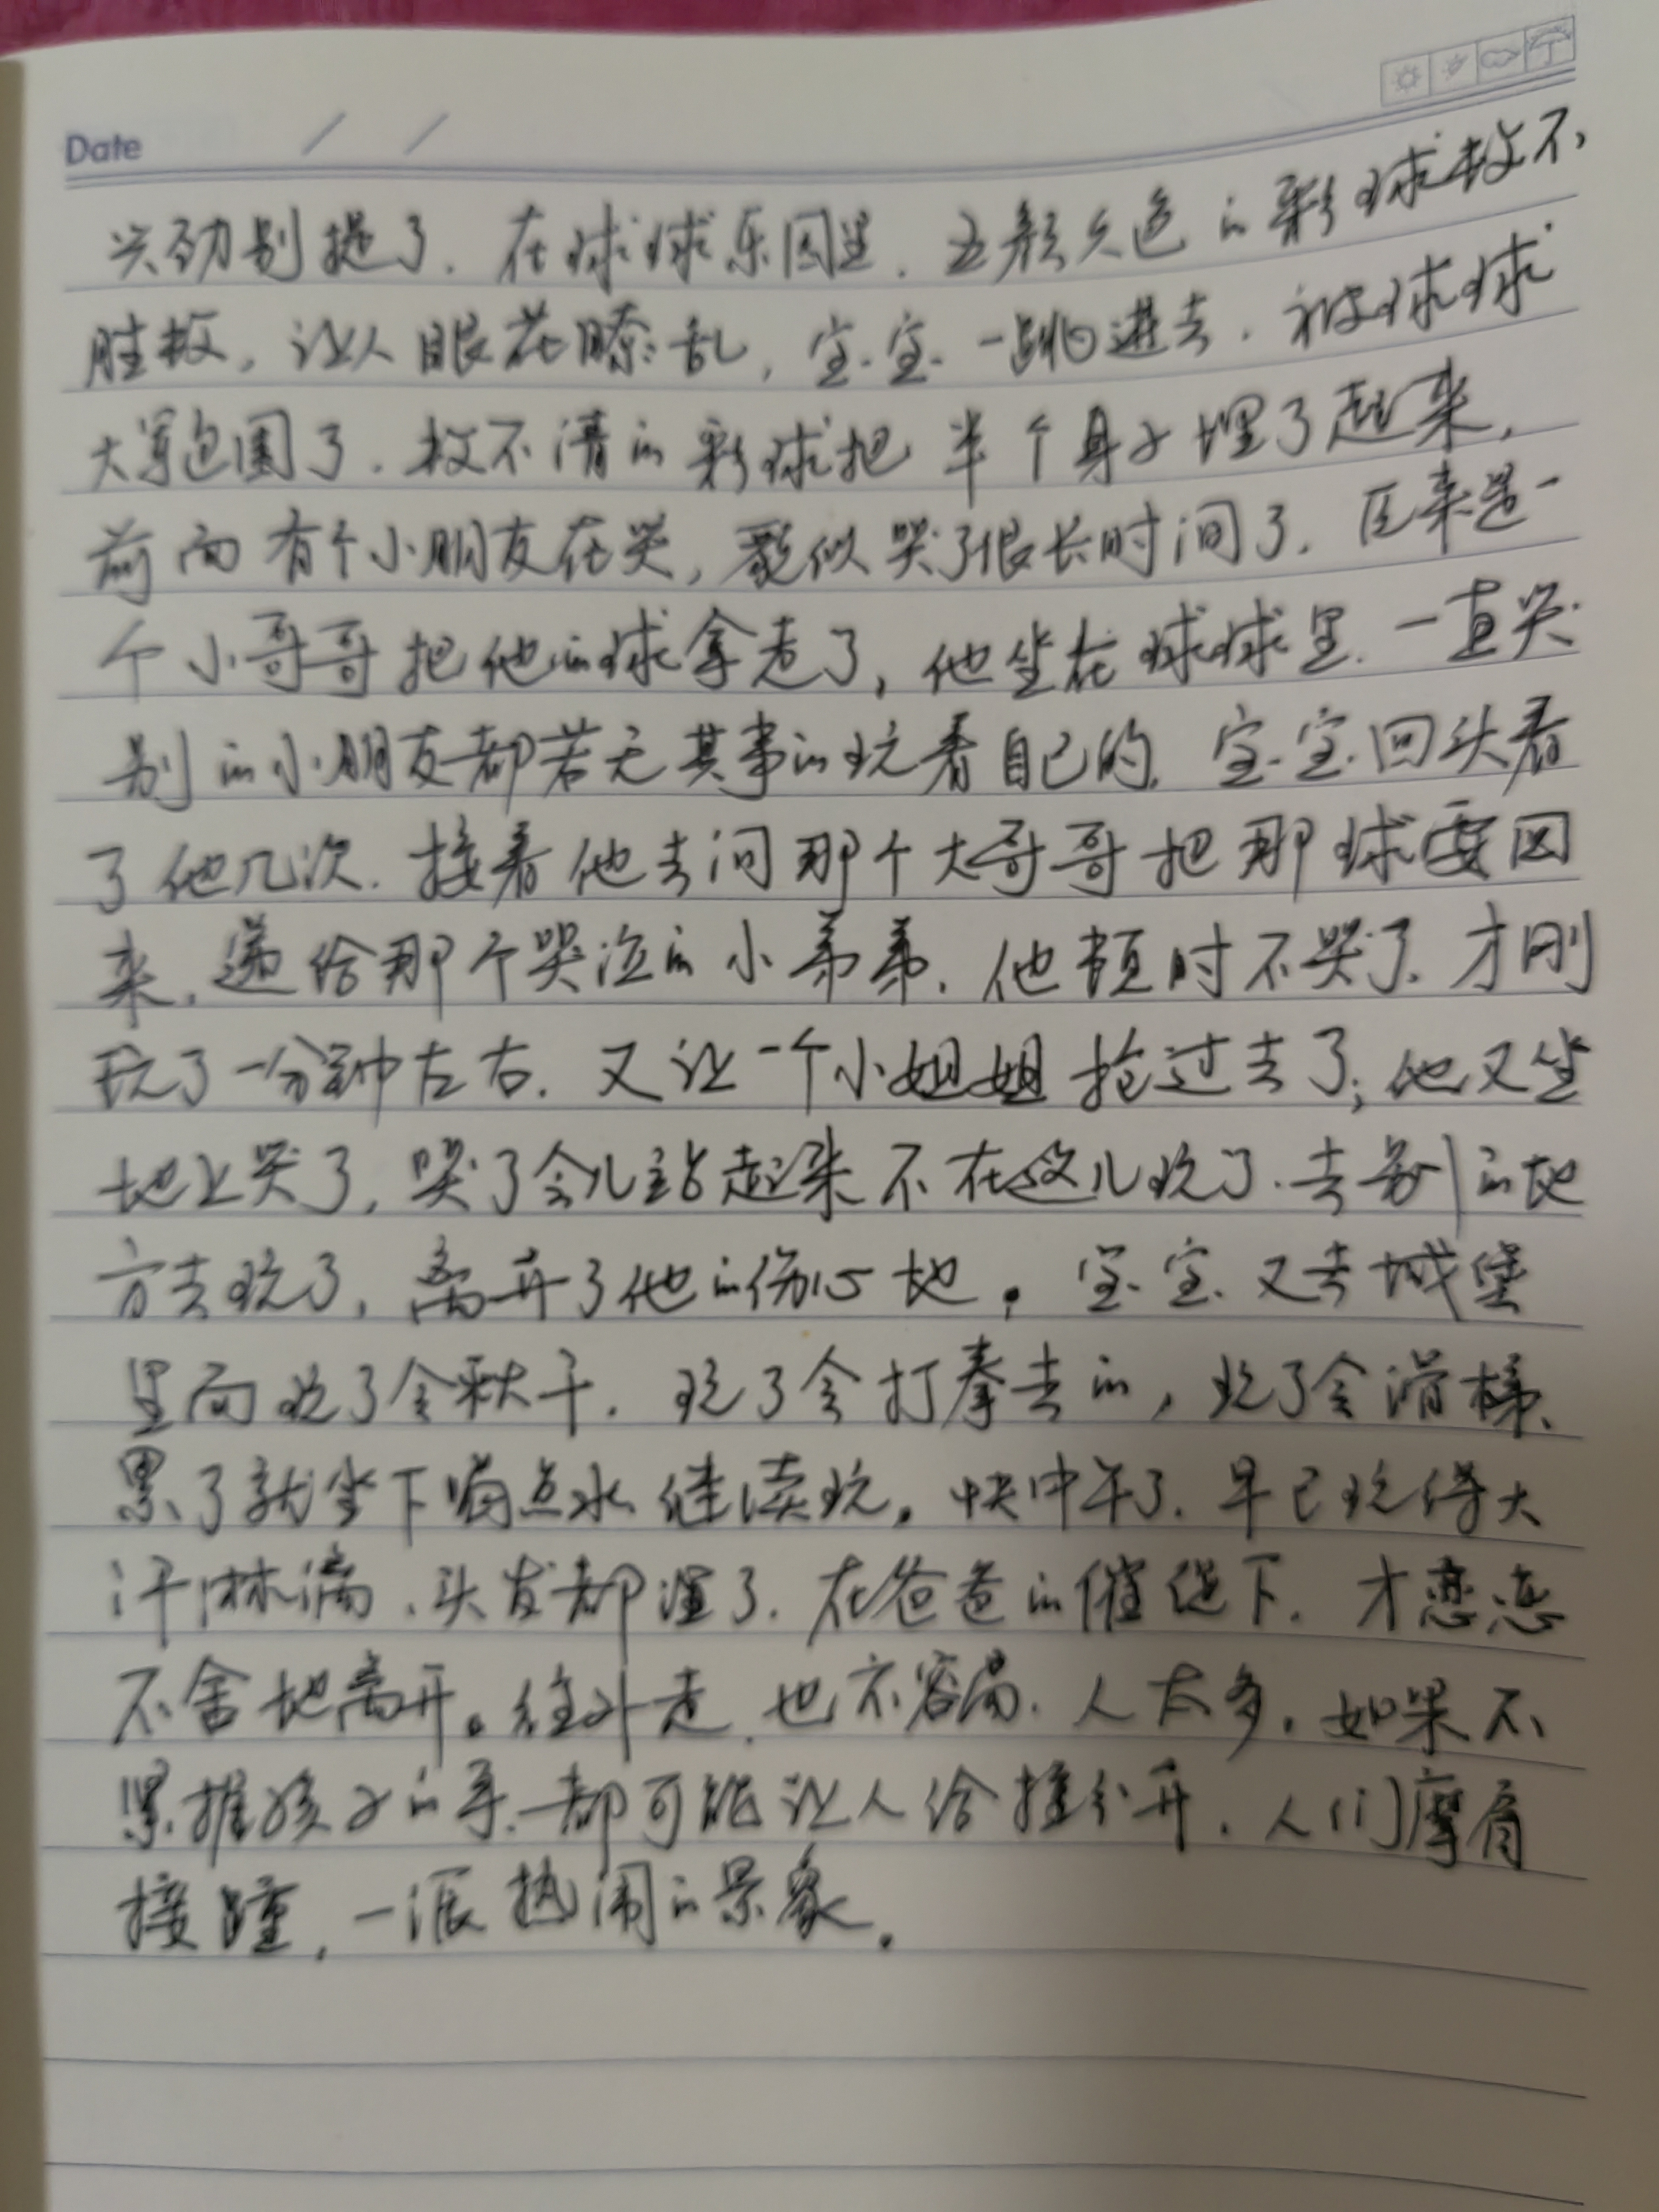 Date / /
兴劲别提了.在球球乐园里.五颜六色的彩球数不
胜数,让人眼花瞭乱,宝宝一跳进去.被球球
大军包围了.数不清的彩球把半个身子埋了起来,
前面有个小朋友在哭,貌似哭了很长时间了.原来是一
个小哥哥把他的球拿走了,他坐在球球里.一直哭
别的小朋友都若无其事的玩着自己的.宝宝回头看
了他几次.接着他去问那个大哥哥把那球要回
来,递给那个哭泣的小弟弟.他顿时不哭了.才刚
玩了一分钟左右.又让一个小姐姐抢过去了;他又坐
地上哭了,哭了会儿站起来不在这儿玩了.去别的地
方去玩了,离开了他的伤心地。宝宝又去城堡
里面玩了会秋千.玩了会打拳击的,玩了会滑梯、
累了就坐下喝点水继续玩。快中午了.早已玩得大
汗淋漓、头发都湿了.在爸爸的催促下.才恋恋
不舍地离开。往外走.也不容易.人太多.如果不
紧握孩子的手.都可能让人给撞分开.人们摩肩
接踵,一派热闹的景象。